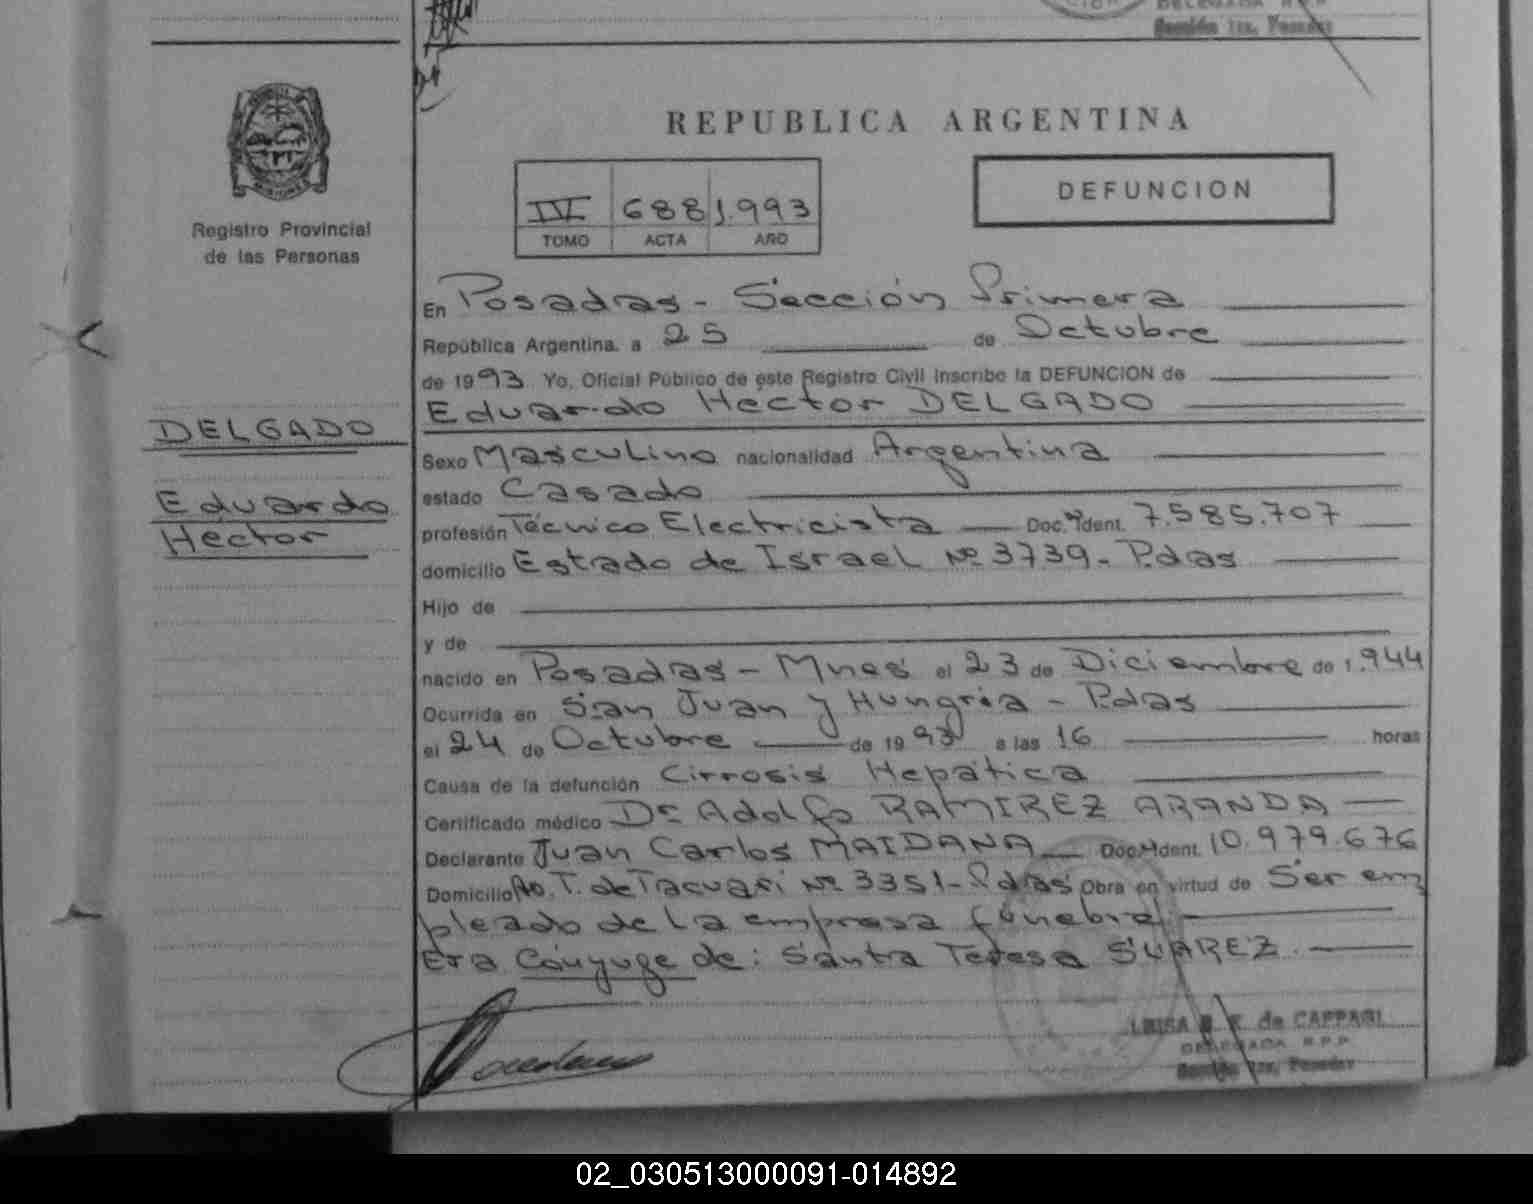 DELEGADA R.P.P.
Sección 1ra. Posadas
REPUBLICA ARGENTINA
DEFUNCION
688 1.993
TOMO ACTA AÑO
Registro Provincial
de las Personas
DELGADO
Eduardo
Hector
En Posadas - Sección Primera
República Argentina. a 25 de Octubre
de 1993 Yo, Oficial Público de este Registro Civil Inscribo la DEFUNCION de
Eduardo Hector DELGADO
Sexo Masculino nacionalidad Argentina
estado Casado
profesión Técnico Electricista Doc. Ident. 7.585.707
domicilio Estado de Israel Nº 3739 - Pdas
Hijo de
y de
nacido en Posadas - Mnes el 23 de Diciembre de 1.944
Ocurrida en San Juan y Hungría - Pdas
el 24 de Octubre de 1993 a las 16 horas
Causa de la defunción Cirrosis Hepática
Certificado médico Dr. Adolfo RAMIREZ ARANDA
Declarante Juan Carlos MAIDANA Doc. Ident. 10.979.676
Domicilio Av. T. de Tacuari Nº 3351 - Pdas Obra en virtud de Ser em
pleado de la empresa fúnebre
Era Cónyuge de: Santa Teresa SUAREZ.
LUISA de CAPPARI
DELEGADA R.P.P.
Sección 1ra. Posadas
02_030513000091-014892